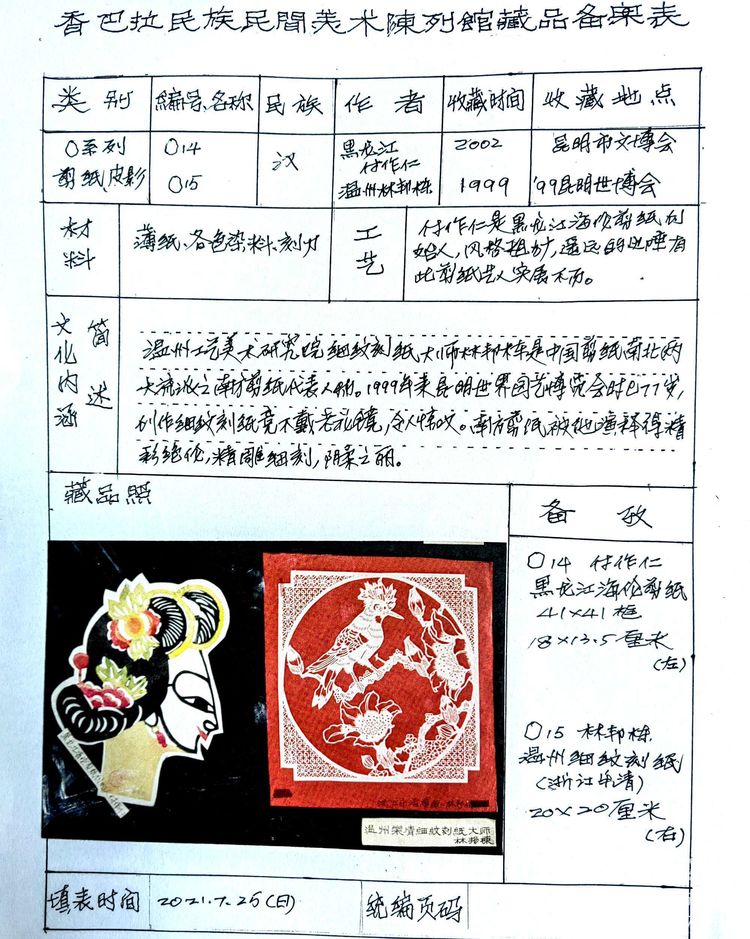 香巴拉民族民間美术陳列館藏品备案表
类别 编号、名称 民族 作者 收藏时间 收藏地点
O系列 014 汉 黑龙江 付作仁 2002 昆明市文博会
剪纸皮影 015 温州林邦栋 1999 '99昆明世博会
材料 薄纸、各色染料、刻刀 工艺 付作仁是黑龙江海伦剪纸创
始人,风格粗犷,遥远的边陲有
此剪纸艺人实属不易。
文化内涵 简述
温州工艺美术研究院细纹刻纸大师林邦栋是中国剪纸南北两
大流派之南方剪纸代表人物。1999年来昆明世界园艺博览会时已77岁,
创作细纹刻纸竟不戴老花镜,令人惊叹。南方剪纸被他演释得精
彩绝伦,精雕细刻,阴柔之丽。
藏品照
备考
014 付作仁
黑龙江海伦剪纸
41×41框
18×13.5厘米
(左)
015 林邦栋
温州细纹刻纸
(浙江乐清)
20×20厘米
(右)
温州樂清細紋刻紙大师
林邦棟
填表时间 2021.7.25(日) 统编页码